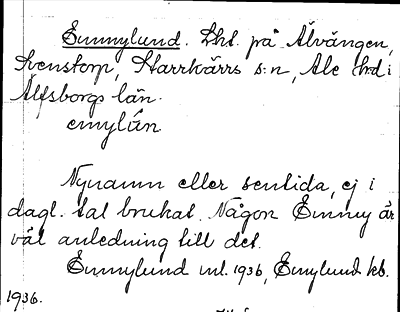 Emmylund. Lht. på Älvängen,
Svenstorp, Starrkärrs s:n, Ale hrd i
Älfsborgs län.
emylún
Nynamn eller sentida, ej i
dagl. tal brukat. Någon Emmy är
väl anledning till det.
Emmylund ml. 1936, Emylund kb.
1936.